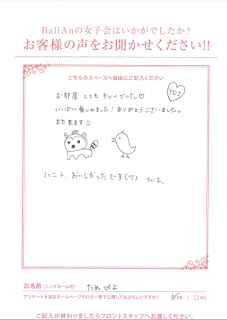 BaliAnの女子会はいかがでしたか?
お客様の声をお聞かせください!!
こちらのスペースへ自由にご記入ください
お部屋 とても キレイでした♡
いっぱい 楽しめました! ありがとうございました。
また来ます
ハニト、おいしかったです(♡) ぴよ。
お名前(ニックネーム可) たぬ ぴよ
アンケートを当店ホームページやロビー等で公開してもよろしいですか? YES / □NO
ご記入が終わりましたらフロントスタッフへお渡しください。